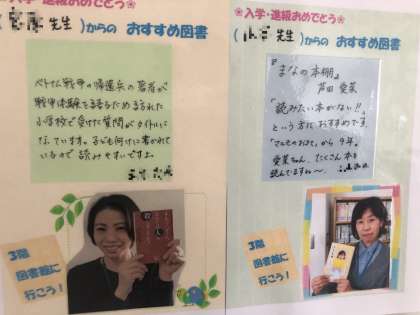 入学・進級おめでとう❀
先生 )からの おすすめ図書
ベトナム戦争の帰還兵の著者が
戦争体験を語るため訪れた
小学校で受けた質問がタイトルに
なっています。子ども向けに書かれて
いるので読みやすいですよ。
3階
図書館に
行こう!
❀入学・進級おめでとう❀
先生 )からの おすすめ図書
『まなの本棚』
芦田 愛菜
「読みたい本がない!!」
という方に、おすすめです。
「マルモのおきて」から 9年。
愛菜ちゃん、たくさん本を
読んでますね〜
3階
図書館に
行こう!